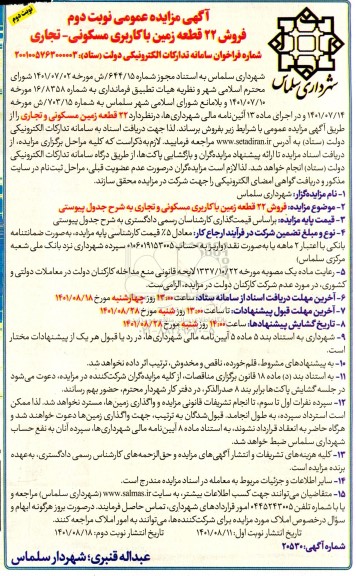 نوبت دوم
آگهی مزایده عمومی نوبت دوم
فروش ۲۲ قطعه زمین با کاربری مسکونی- تجاری
شماره فراخوان سامانه تدارکات الکترونیکی دولت (ستاد): ۲۰۰۱۰۰۵۷۶۳۰۰۰۰۰۳
شهرداری سلماس
شهرداری سلماس به استناد مجوز شماره ۶۴۴/۱۵/ش مورخه ۱۴۰۱/۰۷/۰۲ شورای
محترم اسلامی شهر و نظریه هیات تطبیق فرمانداری به شماره ۱۶/۸۳۵۸ مورخ
۱۴۰۱/۰۷/۱۰ و بلامانع شورای اسلامی شهر سلماس به شماره ۷۰۳/۱۵/ش مورخ
۱۴۰۱/۰۷/۱۴ و در اجرای ماده ۱۳ آئین‌نامه مالی شهرداری‌ها، در نظر دارد ۲۲ قطعه زمین مسکونی و تجاری را از
طریق آگهی مزایده عمومی با شرایط زیر بفروش برساند. لذا جهت دریافت اسناد به سامانه تدارکات الکترونیکی
دولت (ستاد) به آدرس www.setadiran.ir مراجعه فرمایید. لازم به ذکر است که کلیه مراحل برگزاری مزایده، از
دریافت اسناد مزایده تا ارائه پیشنهاد مزایده‌گران و بازگشایی پاکت‌ها، از طریق درگاه سامانه تدارکات الکترونیکی
دولت (ستاد) انجام خواهد شد. لذا لازم است مزایده‌گران درصورت عدم عضویت قبلی، مراحل ثبت‌نام در سایت
مذکور و دریافت گواهی امضای الکترونیکی را جهت شرکت در مزایده محقق سازند.
۱- نام مزایده‌گزار: شهرداری سلماس
۲- موضوع مزایده: فروش ۲۲ قطعه زمین با کاربری مسکونی و تجاری به شرح جدول پیوستی
۳- قیمت پایه مزایده: براساس قیمت‌گذاری کارشناسان رسمی دادگستری به شرح جدول پیوستی
۴- نوع و مبلغ تضمین شرکت در فرآیند ارجاع کار: معادل ۵٪ قیمت کارشناسی پایه مزایده، به صورت ضمانتنامه
بانکی با اعتبار ۲ ماهه یا به صورت نقد (واریز به حساب ۰۱۰۶۰۶۱۹۱۵۳۰۰۵ سپرده شهرداری نزد بانک ملی شعبه
مرکزی سلماس)
۵- رعایت ماده یک مصوبه مورخه ۱۳۳۷/۱۰/۲۲ لایحه قانونی منع مداخله کارکنان دولت در معاملات دولتی و
کشوری، در مورد عدم شرکت کارکنان دولت در مزایده، الزامی‌ست.
۶- آخرین مهلت دریافت اسناد از سامانه ستاد: ساعت ۱۳:۰۰ روز چهارشنبه مورخ ۱۴۰۱/۰۸/۱۸
۷- آخرین مهلت قبول پیشنهادات: تا ساعت ۱۳:۰۰ روز شنبه مورخ ۱۴۰۱/۰۸/۲۸
۸- تاریخ گشایش پیشنهادها: ساعت ۱۴:۰۰ روز شنبه مورخ ۱۴۰۱/۰۸/۲۸
۹- شهرداری به استناد بند ۵ ماده ۵ آیین‌نامه مالی شهرداری‌ها، در رد یا قبول هر یک از پیشنهادات مختار
است.
۱۰- به پیشنهادهای مشروط، قلم‌خورده، ناقص و مخدوش، ترتیب اثر داده نخواهد شد.
۱۱- به استناد بند (د) ماده ۱۸ قانون برگزاری مناقصات، از کلیه مزایده‌گران شرکت‌کننده در مزایده، دعوت می‌شود
در جلسه گشایش پاکت‌ها برابر بند ۸ صدرالذکر، در دفتر کار شهردار محترم، حضور بهم رسانند.
۱۲- سپرده نفرات اول تا سوم، تا انجام تشریفات قانونی مزایده و واگذاری زمین‌ها، مسترد نخواهد شد. لذا ممکن
است استرداد سپرده، به طول انجامد. قبول‌شدگان به ترتیب، جهت واگذاری زمین‌ها دعوت خواهند شد و
هرگاه حاضر به انعقاد قرارداد نشوند، به استناد ماده ۸ آیین‌نامه مالی شهرداری‌ها، سپرده آنان به نفع حساب
شهرداری سلماس ضبط خواهد شد.
۱۳- کلیه هزینه‌های تشریفات و انتشار آگهی‌های مزایده و حق‌الزحمه‌های کارشناس رسمی دادگستری، به عهده
برنده مزایده است.
۱۴- سایر اطلاعات و جزئیات مربوط به معامله در اسناد مزایده مندرج است.
۱۵- متقاضیان می‌توانند جهت کسب اطلاعات بیشتر، به سایت www.salmas.ir (شهرداری سلماس) مراجعه و
یا با شماره تلفن ۰۴۴۵۲۴۳۰۰۵ امور قراردادهای شهرداری، تماس حاصل فرمایند. درصورت بروز هرگونه ابهام و
سؤال درخصوص املاک مورد مزایده برای شرکت‌کننده‌ها، می‌توانند به امور املاک مراجعه کنند.
تاریخ انتشار نوبت اول: ۱۴۰۱/۰۸/۱۱ تاریخ انتشار نوبت دوم: ۱۴۰۱/۰۸/۱۸
شماره آگهی: ۲۰۵۳۰
عبداله قنبری؛ شهردار سلماس